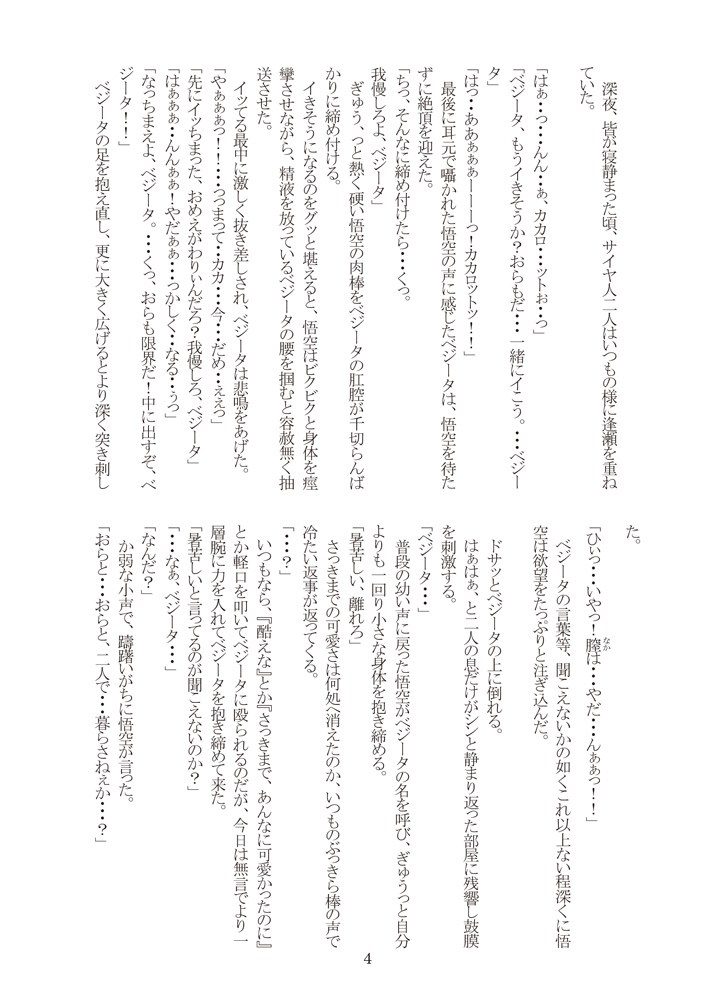 深夜、皆が寝静まった頃、サイヤ人二人はいつもの様に逢瀬を重ね
ていた。
「はぁ・っ・・・んん・・ぁ、カカロ・・・ットぉ・・っ」
「ベジータ、もうイきそうか?おらもだ・・・一緒にイこう。・・・ベジー
タ」
「はっ・・ああぁぁぁーーーっ!カカロットッ!!」
最後に耳元で囁かれた悟空の声に感じたベジータは、悟空を待た
ずに絶頂を迎えた。
「ちっ、そんなに締め付けたら・・・くっ。
我慢しろよ、ベジータ」
ぎゅう、っと熱く硬い悟空の肉棒をベジータの肛腔が千切らんば
かりに締め付ける。
イきそうになるのをグッと堪えると、悟空はビクビクと身体を痙
攣させながら、精液を放っているベジータの腰を掴むと容赦無く抽
送させた。
イッてる最中に激しく抜き差しされ、ベジータは悲鳴をあげた。
「やぁぁぁっ!!・・・っつまって・カカ・・・今・・・だめ・・ぇぇっ」
「先にイッちまった、おめえがわりぃんだろ?我慢しろ、ベジータ」
「はぁぁぁ・・んんぁぁ!やだぁぁ・・・っかしく・・なる・・ぅっ」
「なっちまえよ、ベジータ。・・・くっ、おらも限界だ!中に出すぞ、ベ
ジータ!!」
ベジータの足を抱え直し、更に大きく広げるとより深く突き刺し
た。
「ひぃっ・・・いやっ!膣(なか)は・・・やだ・・・んぁぁっ!!」
ベジータの言葉等、聞こえないかの如くこれ以上ない程深くに悟
空は欲望をたっぷりと注ぎ込んだ。
ドサッとベジータの上に倒れる。
はぁはぁ、と二人の息だけがシンと静まり返った部屋に残響し鼓膜
を刺激する。
「ベジータ・・・」
普段の幼い声に戻った悟空がベジータの名を呼び、ぎゅうっと自分
よりも一回り小さな身体を抱き締める。
「暑苦しい、離れろ」
さっきまでの可愛さは何処へ消えたのか、いつものぶっきら棒の声で
冷たい返事が返ってくる。
「・・・?」
いつもなら、『酷えな』とか『さっきまで、あんなに可愛かったのに』
とか軽口を叩いてベジータに殴られるのだが、今日は無言でより一
層腕に力を入れてベジータを抱き締めて来た。
「暑苦しいと言ってるのが聞こえないのか?」
「・・・なぁ、ベジータ・・・」
「なんだ?」
か弱な小声で、躊躇いがちに悟空が言った。
「おらと・・・おらと、二人で・・・暮らさねぇか・・・?」
4